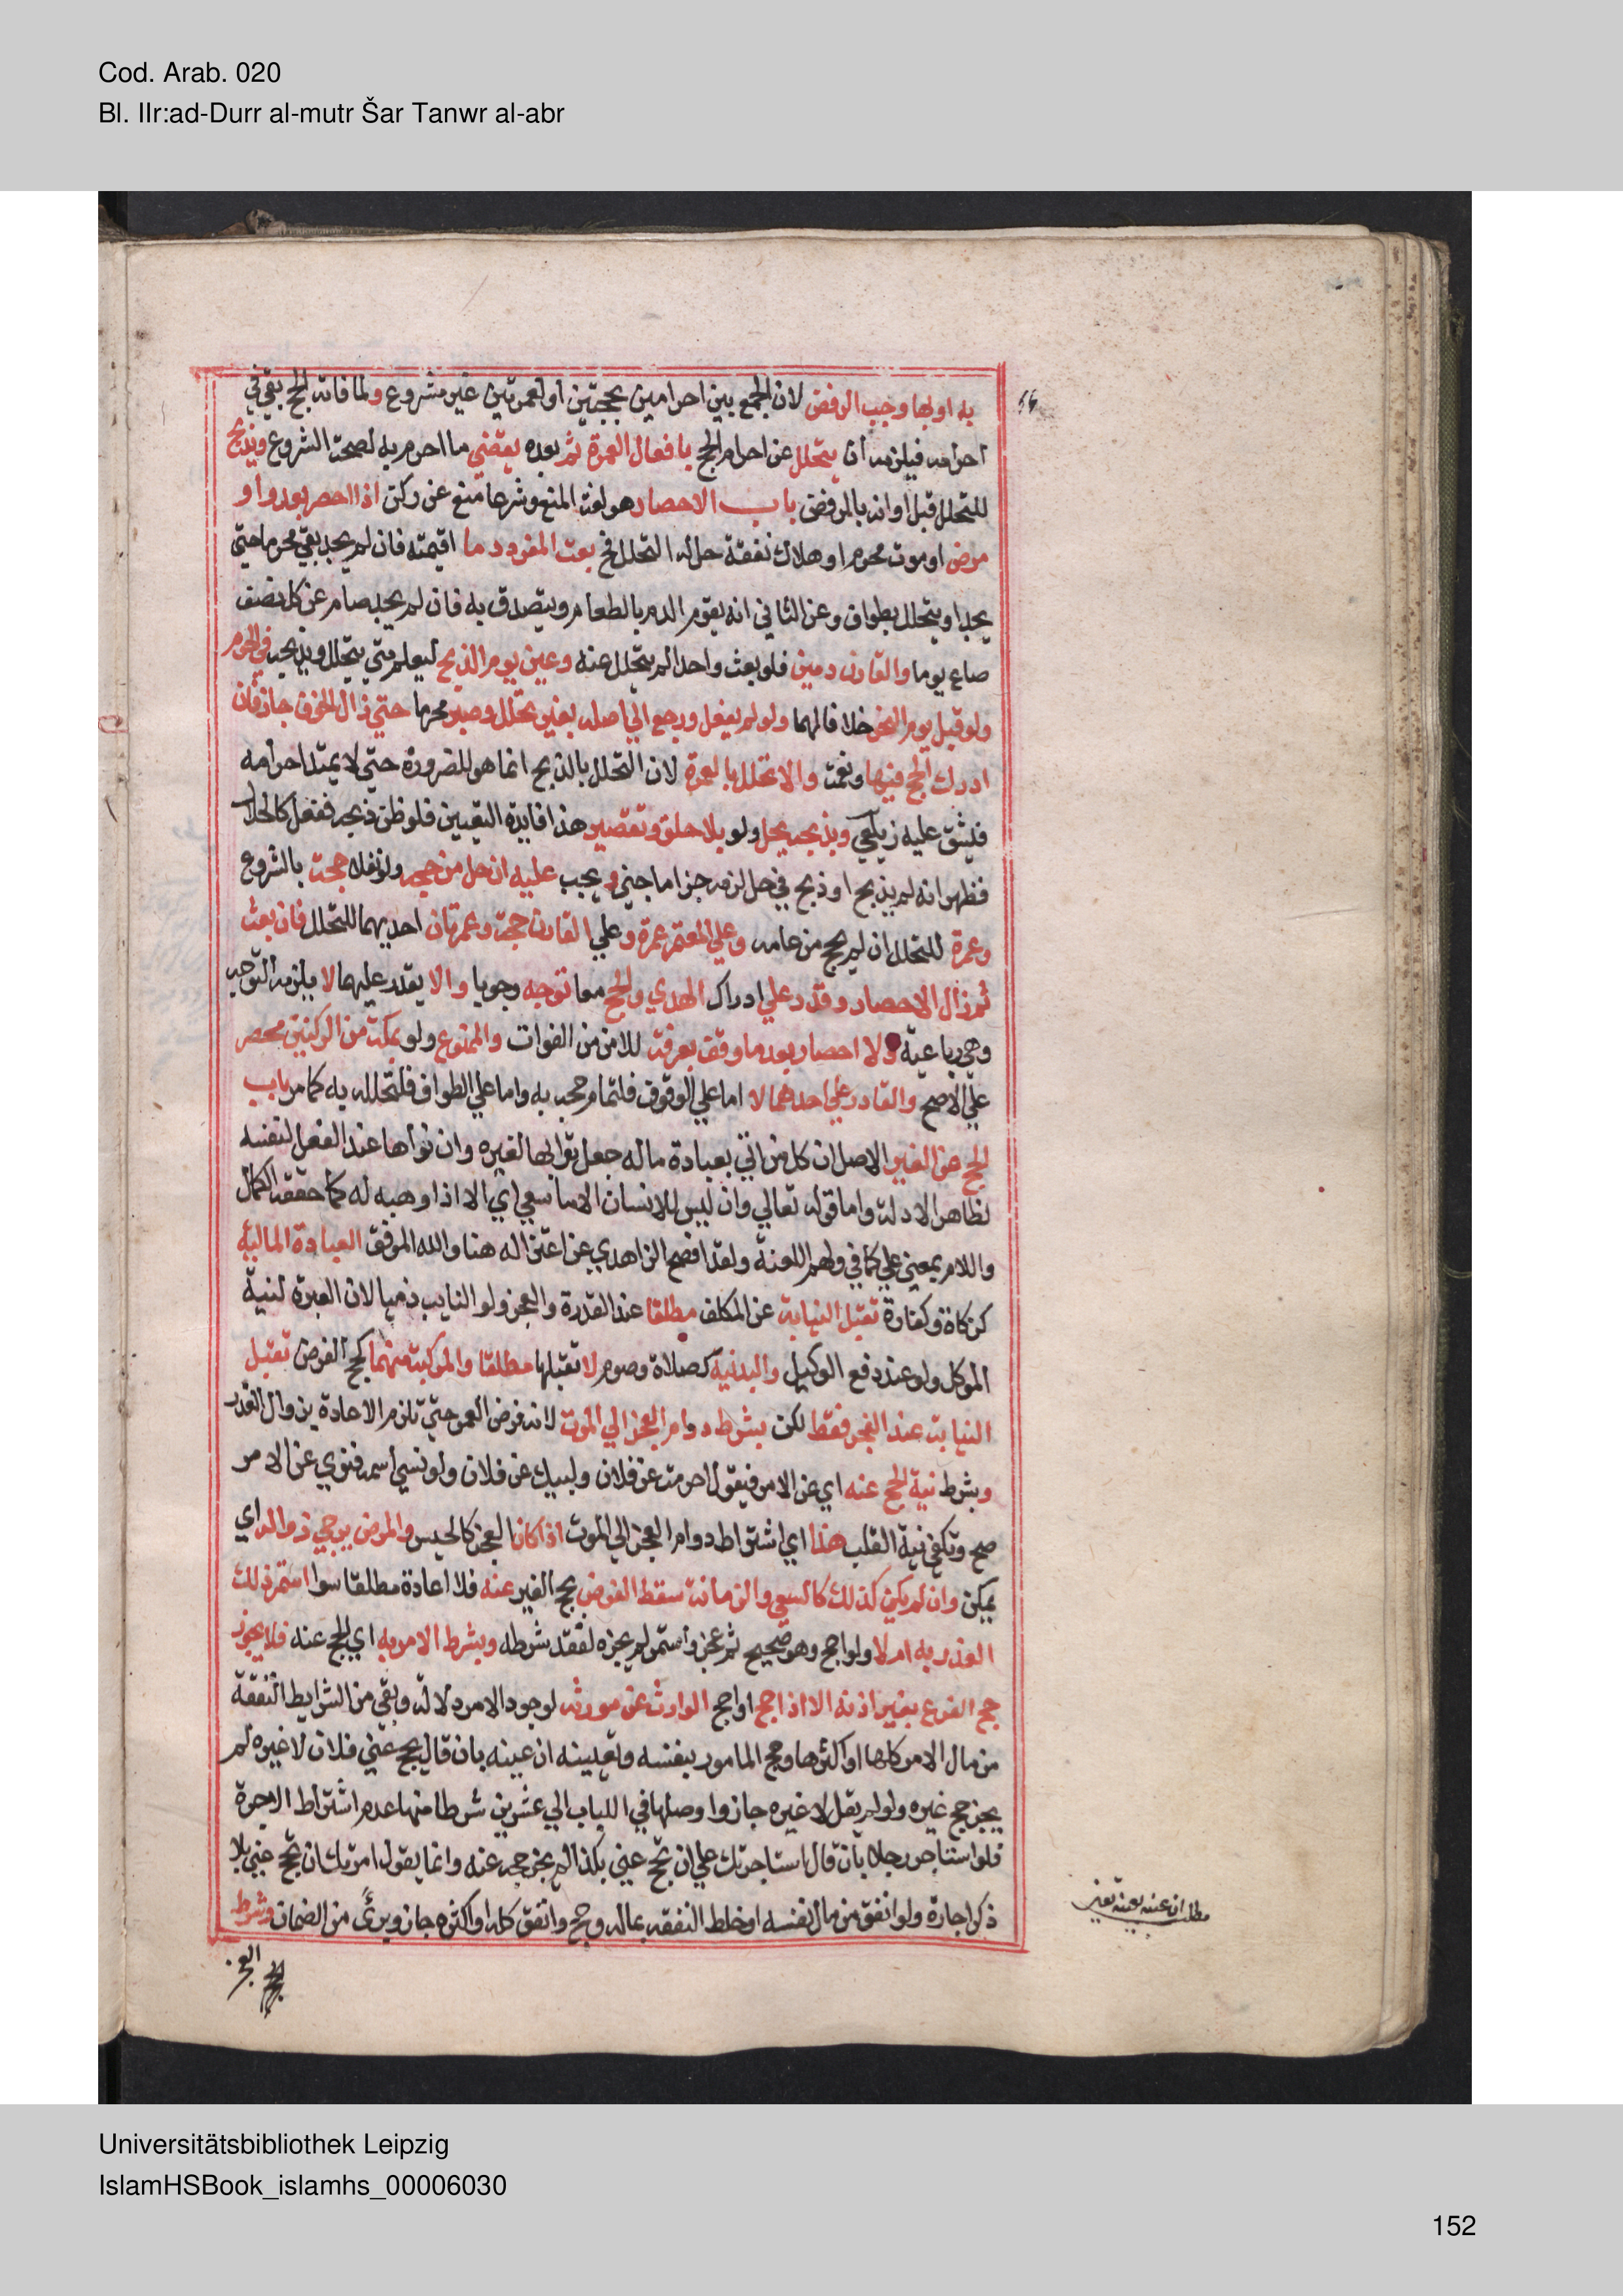 Cod. Arab. 020
Bl. IIr:ad-Durr al-mutr Šar Tanwr al-abr
به او بها وجب الرفض لان الجمع بين احرامين بحجتين او لعمرتين غير مشروع ولما فاته الحج بقي في
احرامه فيلزمه ان يتحلل عن احرام الحج بافعال العمرة ثم بعده يقضي ما احرم به لصحة الشروع ويذبح
للتحلل قبل اوانه بالرفض باب الاحصار هو لغة المنع وشرعا منع عن ركن اذا احصر بعدو او
مرض او موت محرم او هلاك نفقة حل له التحلل فح بعث المفرد دما او قيمته فان لم يجد بقي محرما حتي
يجد او يتحلل بطواف وعن الثاني انه يقوم الدم بالطعام ويتصدق به فان لم يجد صام عن كل نصف
صاع يوما والقارن دمين فلو بعث واحدا لم يتحلل عنه وعين يوم الذبح ليعلم متي يتحلل ويذبحه في الحرم
ولو قبل يوم النحر خلافا لهما ولو لم يفعل ورجع الي اهله بغير تحلل وصبر محرما حتي زال الخوف جاز فان
ادرك الحج فبها ونعمت والا تحلل بالعمرة لان التحلل بالذبح انما هو للضرورة حتي لا يمتد احرامه
فيشق عليه زيلعي وبذبحه يحل ولو بلا حلق وتقصير هذا فايدة التعيين فلو ظن ذبحه ففعل كالحلال
فظهر انه لم يذبح او ذبح في حل لزمه جزا ما جني و يجب عليه ان حل من حجه ولو نفلا حجة بالشروع
وعمرة للتحلل ان لم يحج من عامه وعلي المعتمر عمرة وعلي القارن حجة وعمرتان احديهما للتحلل فان بعث
ثم زال الاحصار وقدر علي ادراك الهدي والحج معا توجه وجوبا والا يقدر عليهما لا يلزمه التوجه
وهي رباعية ولا احصار بعد ما وقف بعرفة للامن من الفوات والممنوع ولو بمكة من الركنين محصر
علي الاصح والقادر علي احدهما لا اما علي الوقوف فلتمام حجه به واما علي الطواف فلتحلله به كما مر باب
الحج عن الغير الاصل ان كل من اتي بعبادة ما له جعل ثوابها لغيره وان نواها عند الفعل لنفسه
لظاهر الادلة واما قوله تعالي وان ليس للانسان الا ما سعي اي الا اذا وهبه له كما حققه الكمال
واللام بمعني علي كما في ولهم اللعنة ولقد افصح الزاهدي عن اعتزاله هنا والله الموفق العبادة المالية
كزكاة وكفارة تقبل النيابة عن المكلف مطلقا عند القدرة والعجز ولو النايب ذميا لان العبرة لنية
الموكل ولو عند دفع الوكيل والبدنية كصلاة وصوم لا تقبلها مطلقا والمركبة منهما كحج الفرض تقبل
النيابة عند العجز فقط لكن بشرط دوام العجز الي الموت لانه فرض العمر حتي تلزم الاعادة بزوال العذر
وبشرط نية الحج عنه اي عن الامر فيقول احرمت عن فلان ولبيك عن فلان ولو نسي اسمه فنوي عن الامر
صح وتكفي نية القلب هذا اي اشتراط دوام العجز الي الموت اذا كان العجز كالحبس والمرض يرجي زواله اي
يمكن وان لم يكن كذلك كالعمي والزمانة سقط الفرض بحج الغير عنه فلا اعادة مطلقا سوا استمر ذلك
العذر به ام لا ولو احج وهو صحيح ثم عجز واستمر لم يجزه لفقد شرطه وبشرط الامر به اي الحج عنه فلا يجوز
حج الفرع بغير اذنه الا اذا حج او احج الوارث عن مورثه لوجود الامر دلالة وبقي من الشرايط النفقة
من مال الامر كلها او اكثرها وحج المامور بنفسه وتعيينه ان عينه بان قال يحج عني فلان لا غيره لم
يجز حج غيره ولو لم يقل لا غيره جاز واوصلها في اللباب الي عشرين شرطا منها عدم اشتراط الاجرة
فلو استاجر رجلا بان قال استاجرتك علي ان تحج عني بكذا لم يجز حجه عنه وانما يقول امرتك ان تحج عني بلا
ذكر اجارة ولو انفق من مال نفسه او خلط النفقة بماله وحج وانفق كله او اكثره جاز وبرئ من الضمان وشرط
العجز
مطلب ان عينه
Universitätsbibliothek Leipzig
IslamHSBook_islamhs_00006030
152